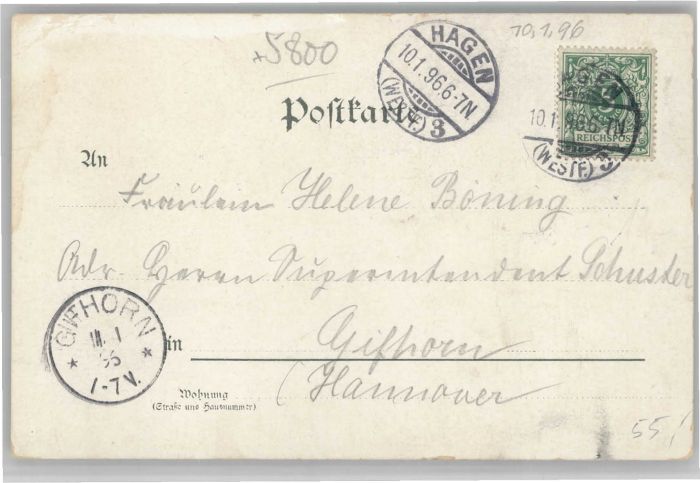 +5800
10.1.96
HAGEN
10.1.96 6-7N
(WESTF.) 3
10.1.96 6-7N
(WESTF.) 3
REICHSPOST
Postkarte
An
Fräulein Helene Böning
Adr. Herrn Superintendent Schuster
in Gifhorn
(Hannover
GIFHORN
1-7V.
Wohnung
(Straße und Hausnummer)
55,-